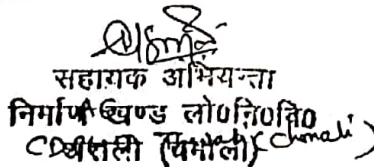 सहायक अभियन्ता
निर्माण खण्ड लो०नि०वि०
थराली (चमोली) (Chmali)